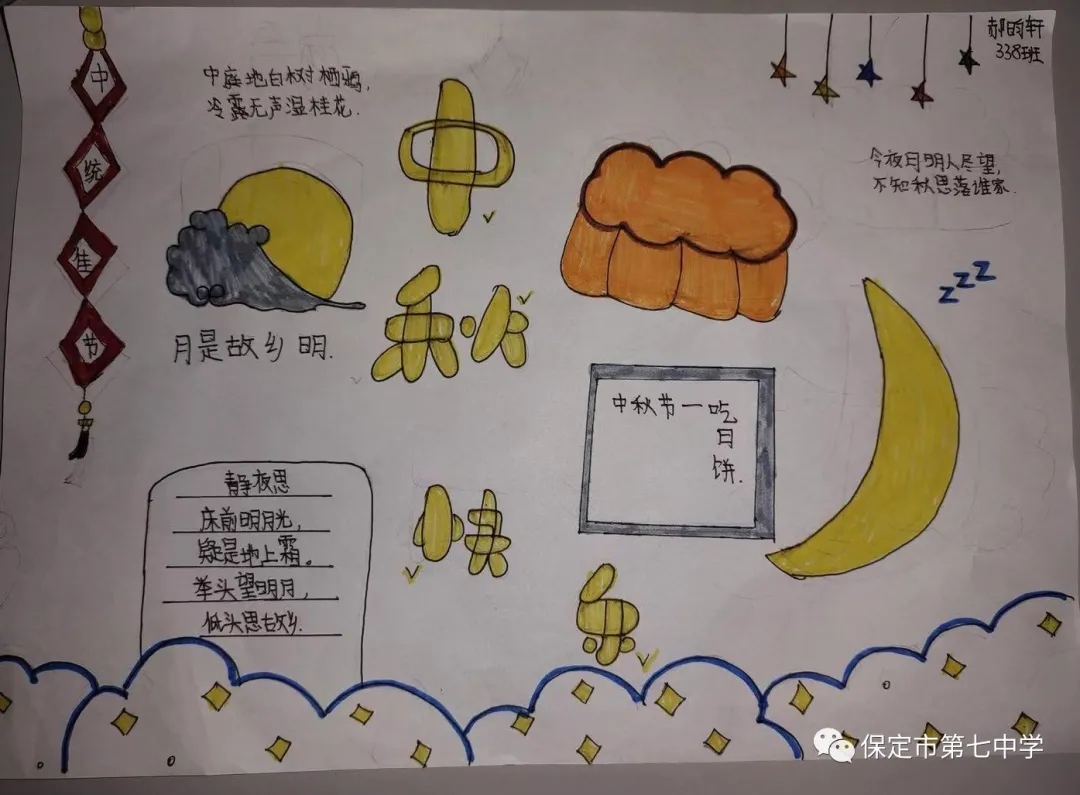 郝昀轩
338班
中
统
佳
节
中庭地白树栖鸦,
冷露无声湿桂花.
今夜月明人尽望,
不知秋思落谁家.
中
秋
快
乐
月是故乡明.
中秋节一吃
月
饼.
zzz
静夜思
床前明月光,
疑是地上霜。
举头望明月,
低头思故乡.
保定市第七中学